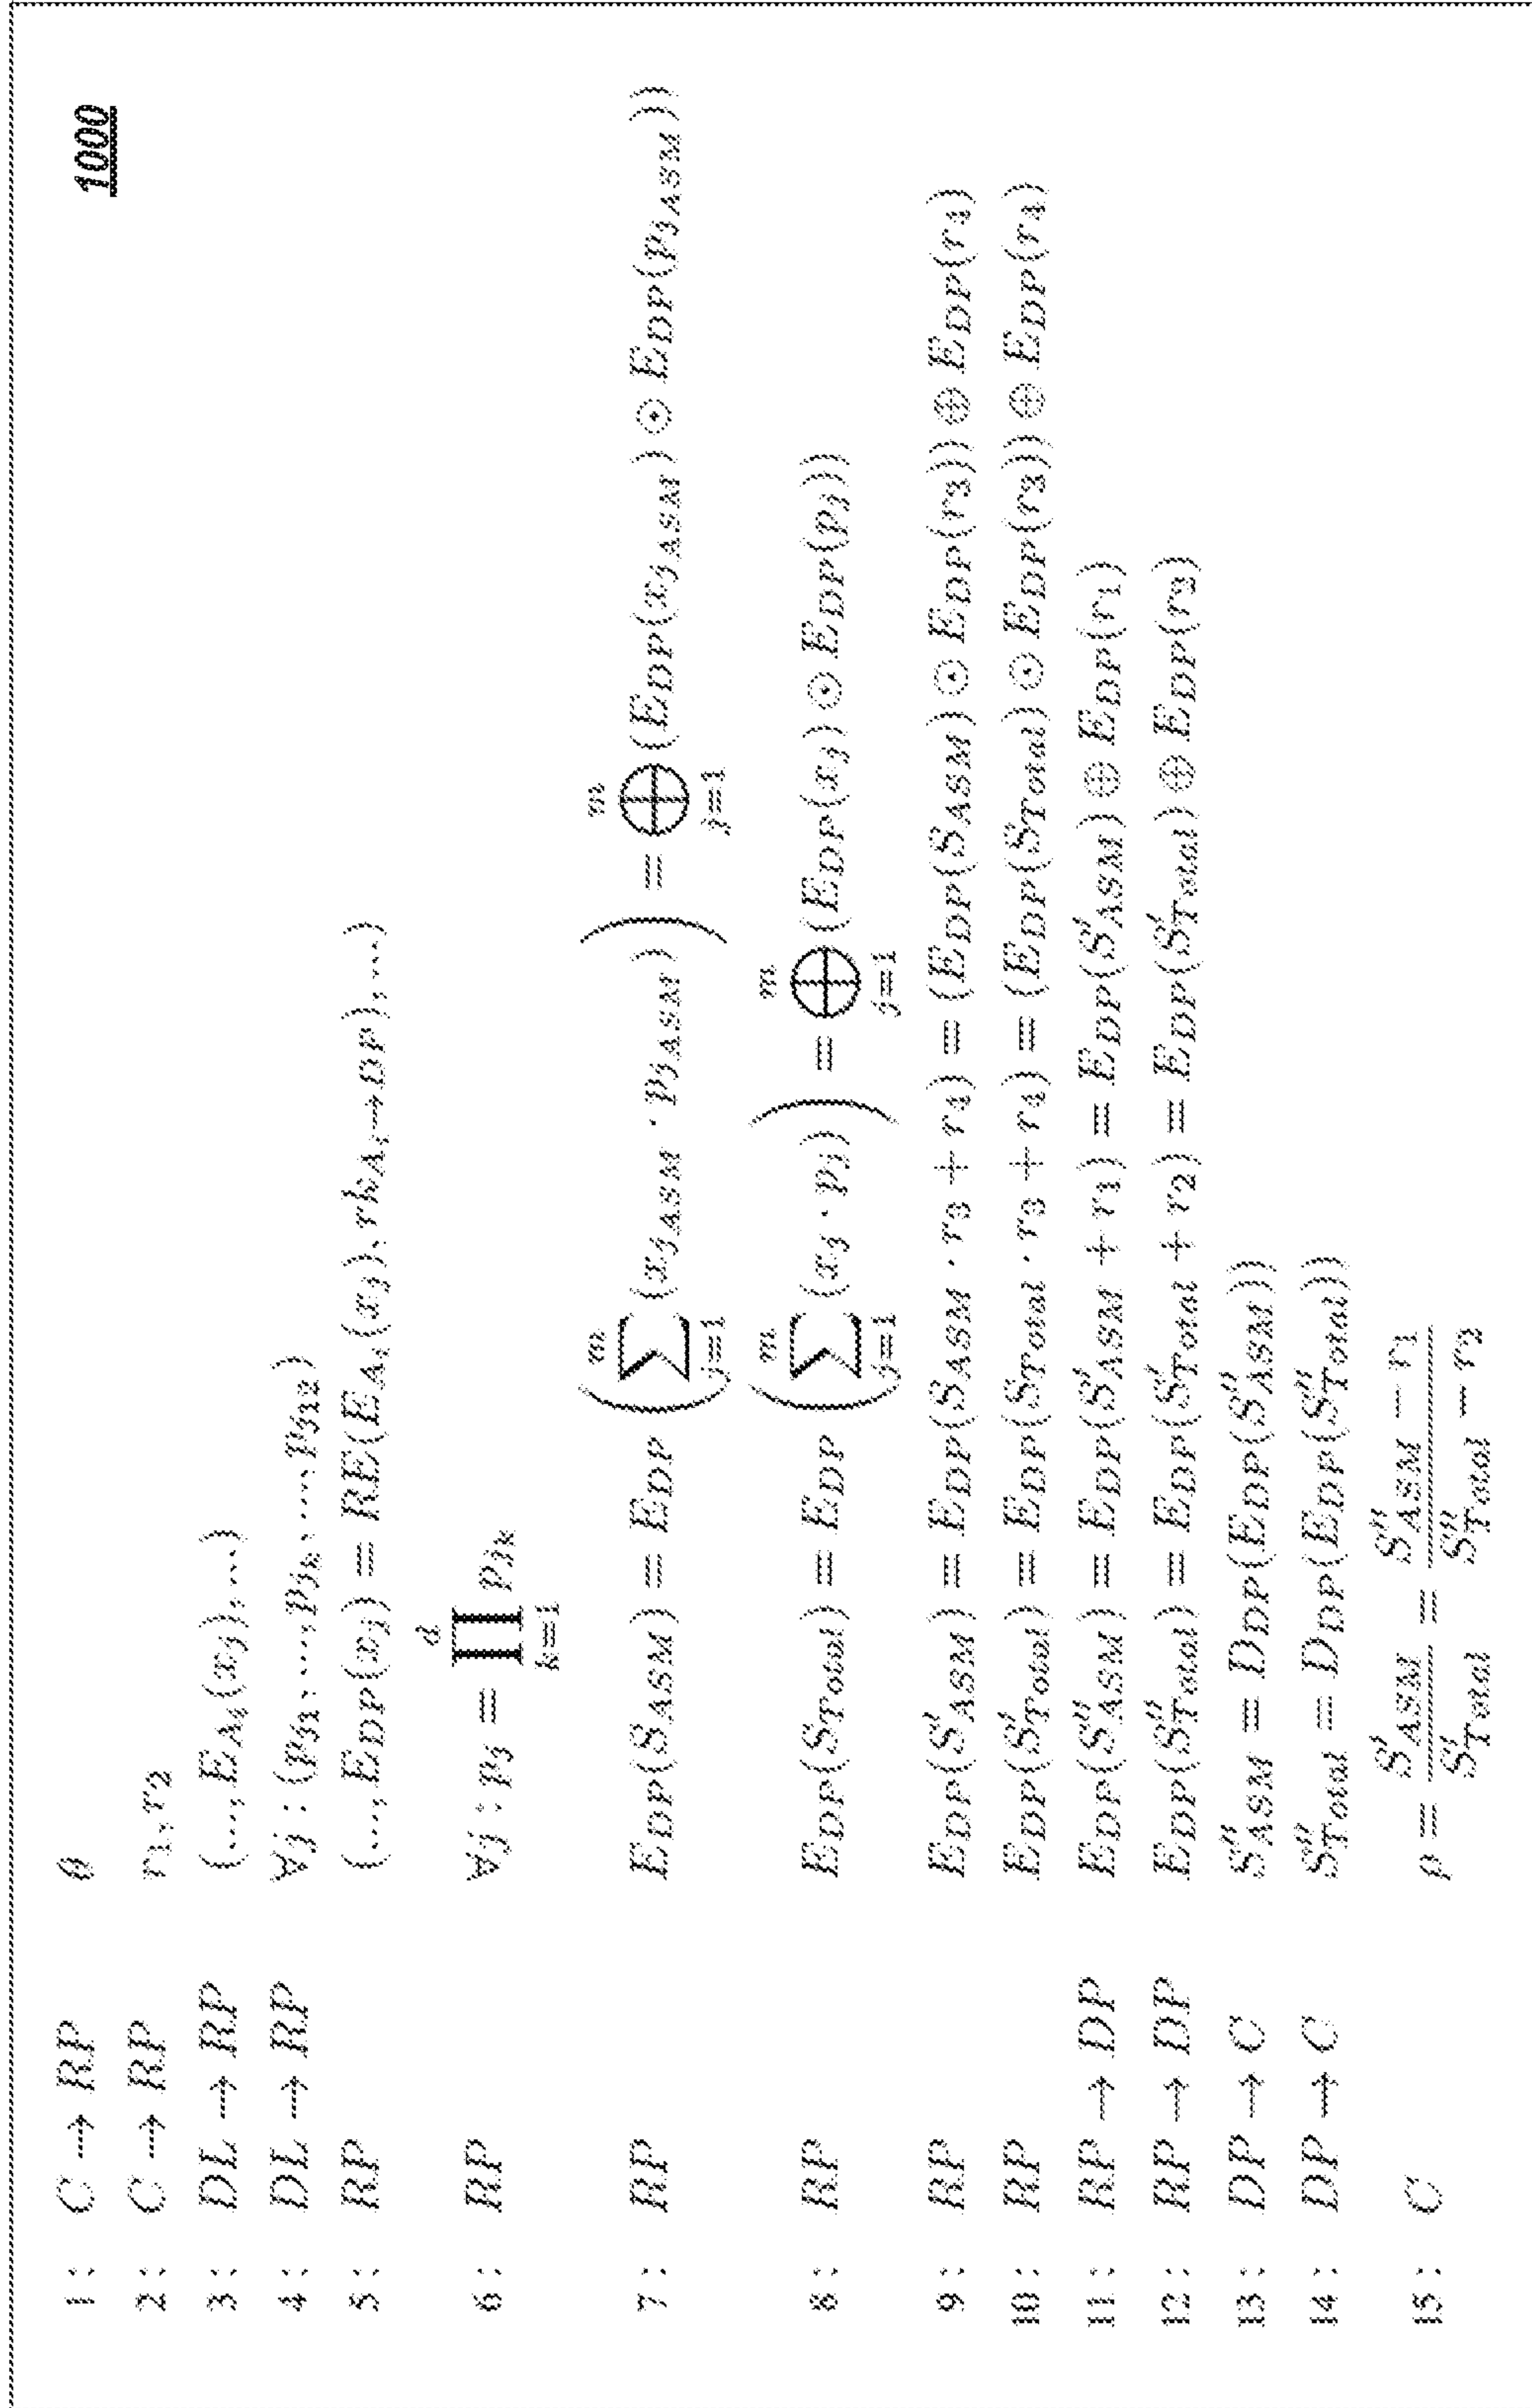 1000
1 : C → RP θ
2 : C → RP r₁, r₂
3 : DL → RP (..., E_{A_i}(x_j), ...)
4 : DL → RP ∀j : (p_{j_1}, ..., p_{j_k}, ..., p_{j_{12}})
5 : RP (..., E_{DP}(x_j) = RE(E_{A_i}(x_j), rk_{A_i→DP}), ...)
6 : RP ∀j : p_j = ∏_{k=1}^{d} p_{j_k}
7 : RP E_{DP}(S_{ASM}) = E_{DP} ( ∑_{j=1}^{m} (x_{j_{ASM}} · p_{j_{ASM}}) ) = ⊕_{j=1}^{m} (E_{DP}(x_{j_{ASM}}) ⊙ E_{DP}(p_{j_{ASM}}))
8 : RP E_{DP}(S_{Total}) = E_{DP} ( ∑_{j=1}^{m} (x_j · p_j) ) = ⊕_{j=1}^{m} (E_{DP}(x_j) ⊙ E_{DP}(p_j))
9 : RP E_{DP}(S'_{ASM}) = E_{DP}(S_{ASM} · r₃ + r₄) = (E_{DP}(S_{ASM}) ⊙ E_{DP}(r₃)) ⊕ E_{DP}(r₄)
10 : RP E_{DP}(S'_{Total}) = E_{DP}(S_{Total} · r₃ + r₄) = (E_{DP}(S_{Total}) ⊙ E_{DP}(r₃)) ⊕ E_{DP}(r₄)
11 : RP → DP E_{DP}(S''_{ASM}) = E_{DP}(S'_{ASM} + r₁) = E_{DP}(S'_{ASM}) ⊕ E_{DP}(r₁)
12 : RP → DP E_{DP}(S''_{Total}) = E_{DP}(S'_{Total} + r₂) = E_{DP}(S'_{Total}) ⊕ E_{DP}(r₂)
13 : DP → C S''_{ASM} = D_{DP}(E_{DP}(S''_{ASM}))
14 : DP → C S''_{Total} = D_{DP}(E_{DP}(S''_{Total}))
15 : C ρ = S'_{ASM} / S'_{Total} = (S''_{ASM} − r₁) / (S''_{Total} − r₂)